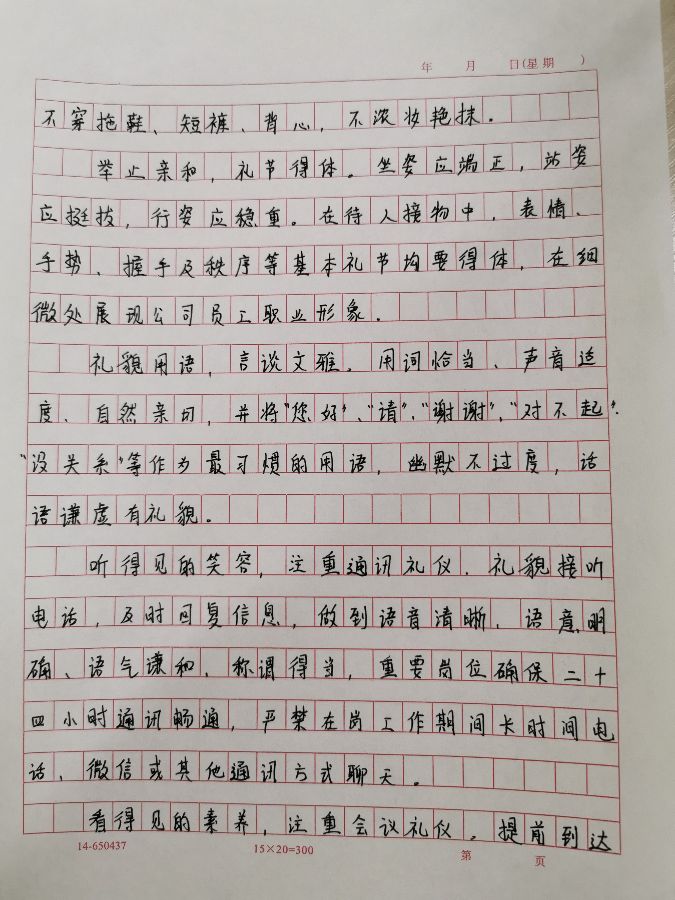 年 月 日(星期 )
不穿拖鞋、短裤、背心，不浓妆艳抹。
举止亲和，礼节得体。坐姿应端正，站姿
应挺拔，行姿应稳重。在待人接物中，表情、
手势、握手及秩序等基本礼节均要得体，在细
微处展现公司员工职业形象。
礼貌用语，言谈文雅。用词恰当、声音适
度、自然亲切，并将“您好”、“请”、“谢谢”、“对不起”、
“没关系”等作为最习惯的用语，幽默不过度，话
语谦虚有礼貌。
听得见的笑容，注重通讯礼仪。礼貌接听
电话，及时回复信息，做到语音清晰、语意明
确、语气谦和、称谓得当，重要岗位确保二十
四小时通讯畅通，严禁在岗工作期间长时间电
话、微信或其他通讯方式聊天。
看得见的素养，注重会议礼仪。提前到达
14-650437 15×20=300 第 页